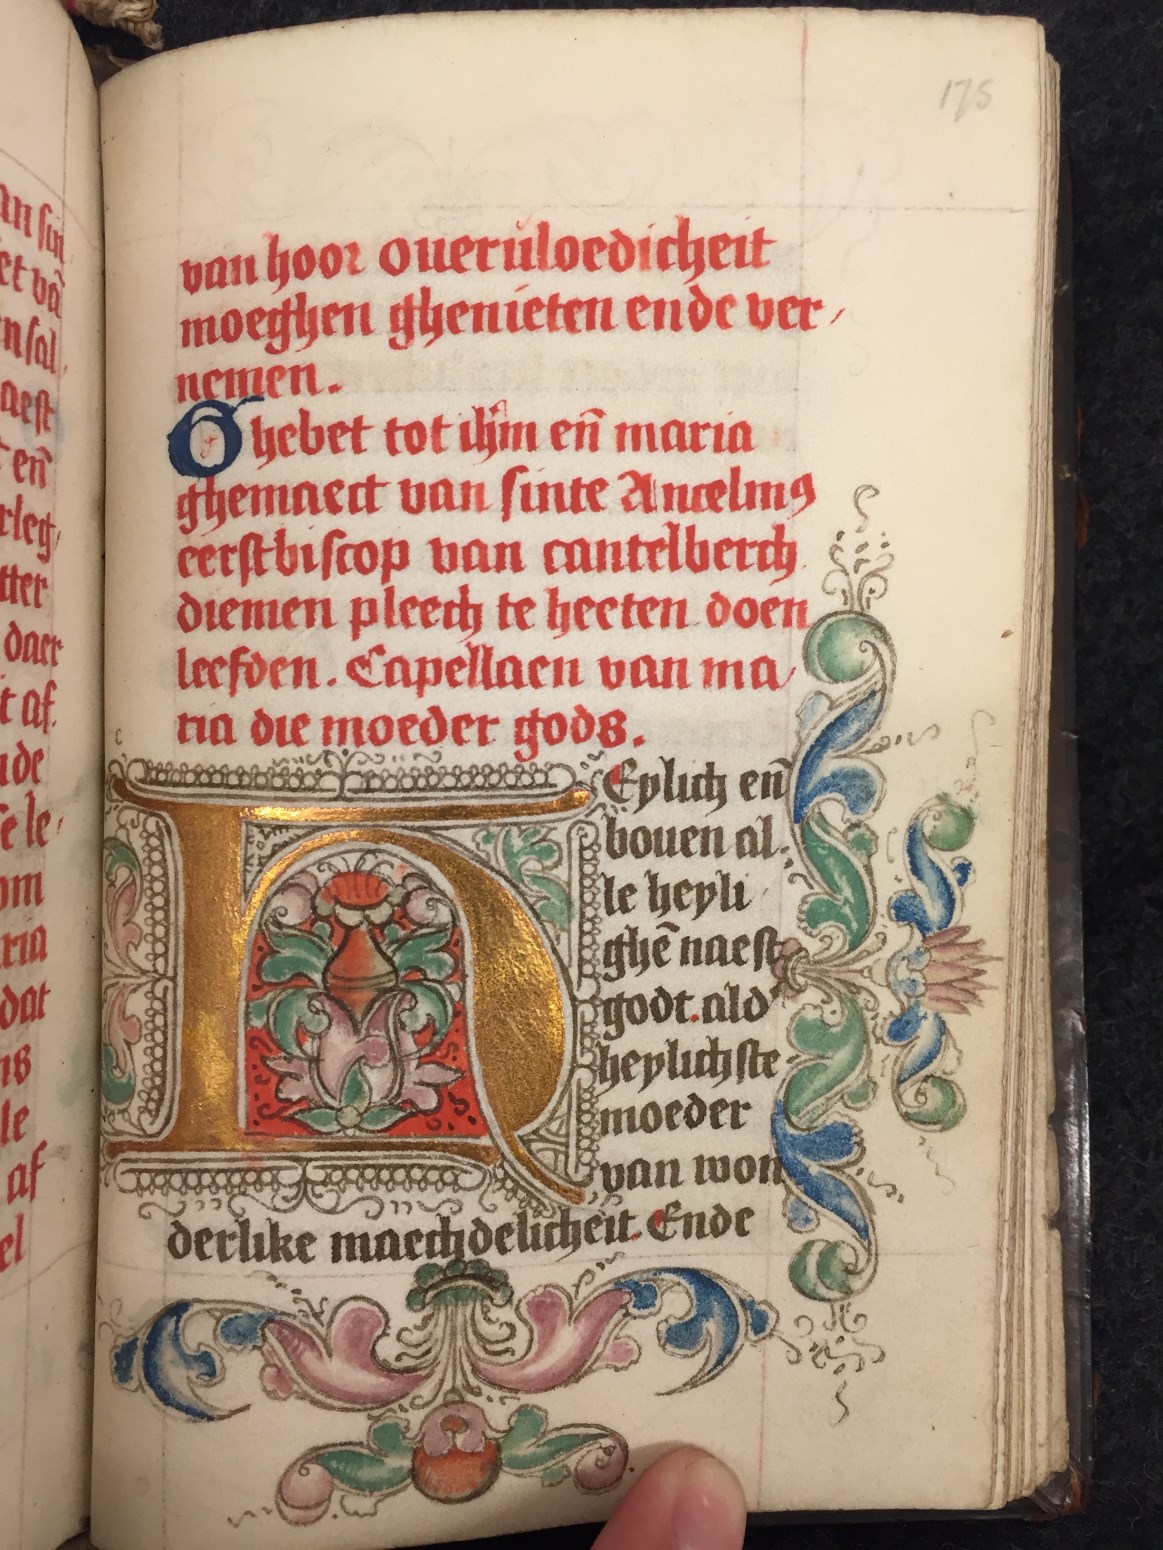 an sin
et vā
n sal
aest
en̄
rleg
tter
daer
t af.
nde
se le
om
ria
dat
ns
le
af
el
175
van hoor oueruloedicheit
moeghen ghenieten ende ver
nemen.
Ghebet tot ih̄m en̄ maria
ghemaect van sinte Ancelmꝯ
eerstbiscop van cantelberch
diemen pleech te heeten doen
leefden. Capellaen van ma
ria die moeder gods.
HEylich en̄
bouen al
le heyli
ghē naest
godt. ald'
heylichste
moeder
van won
derlike maechdelicheit. Ende